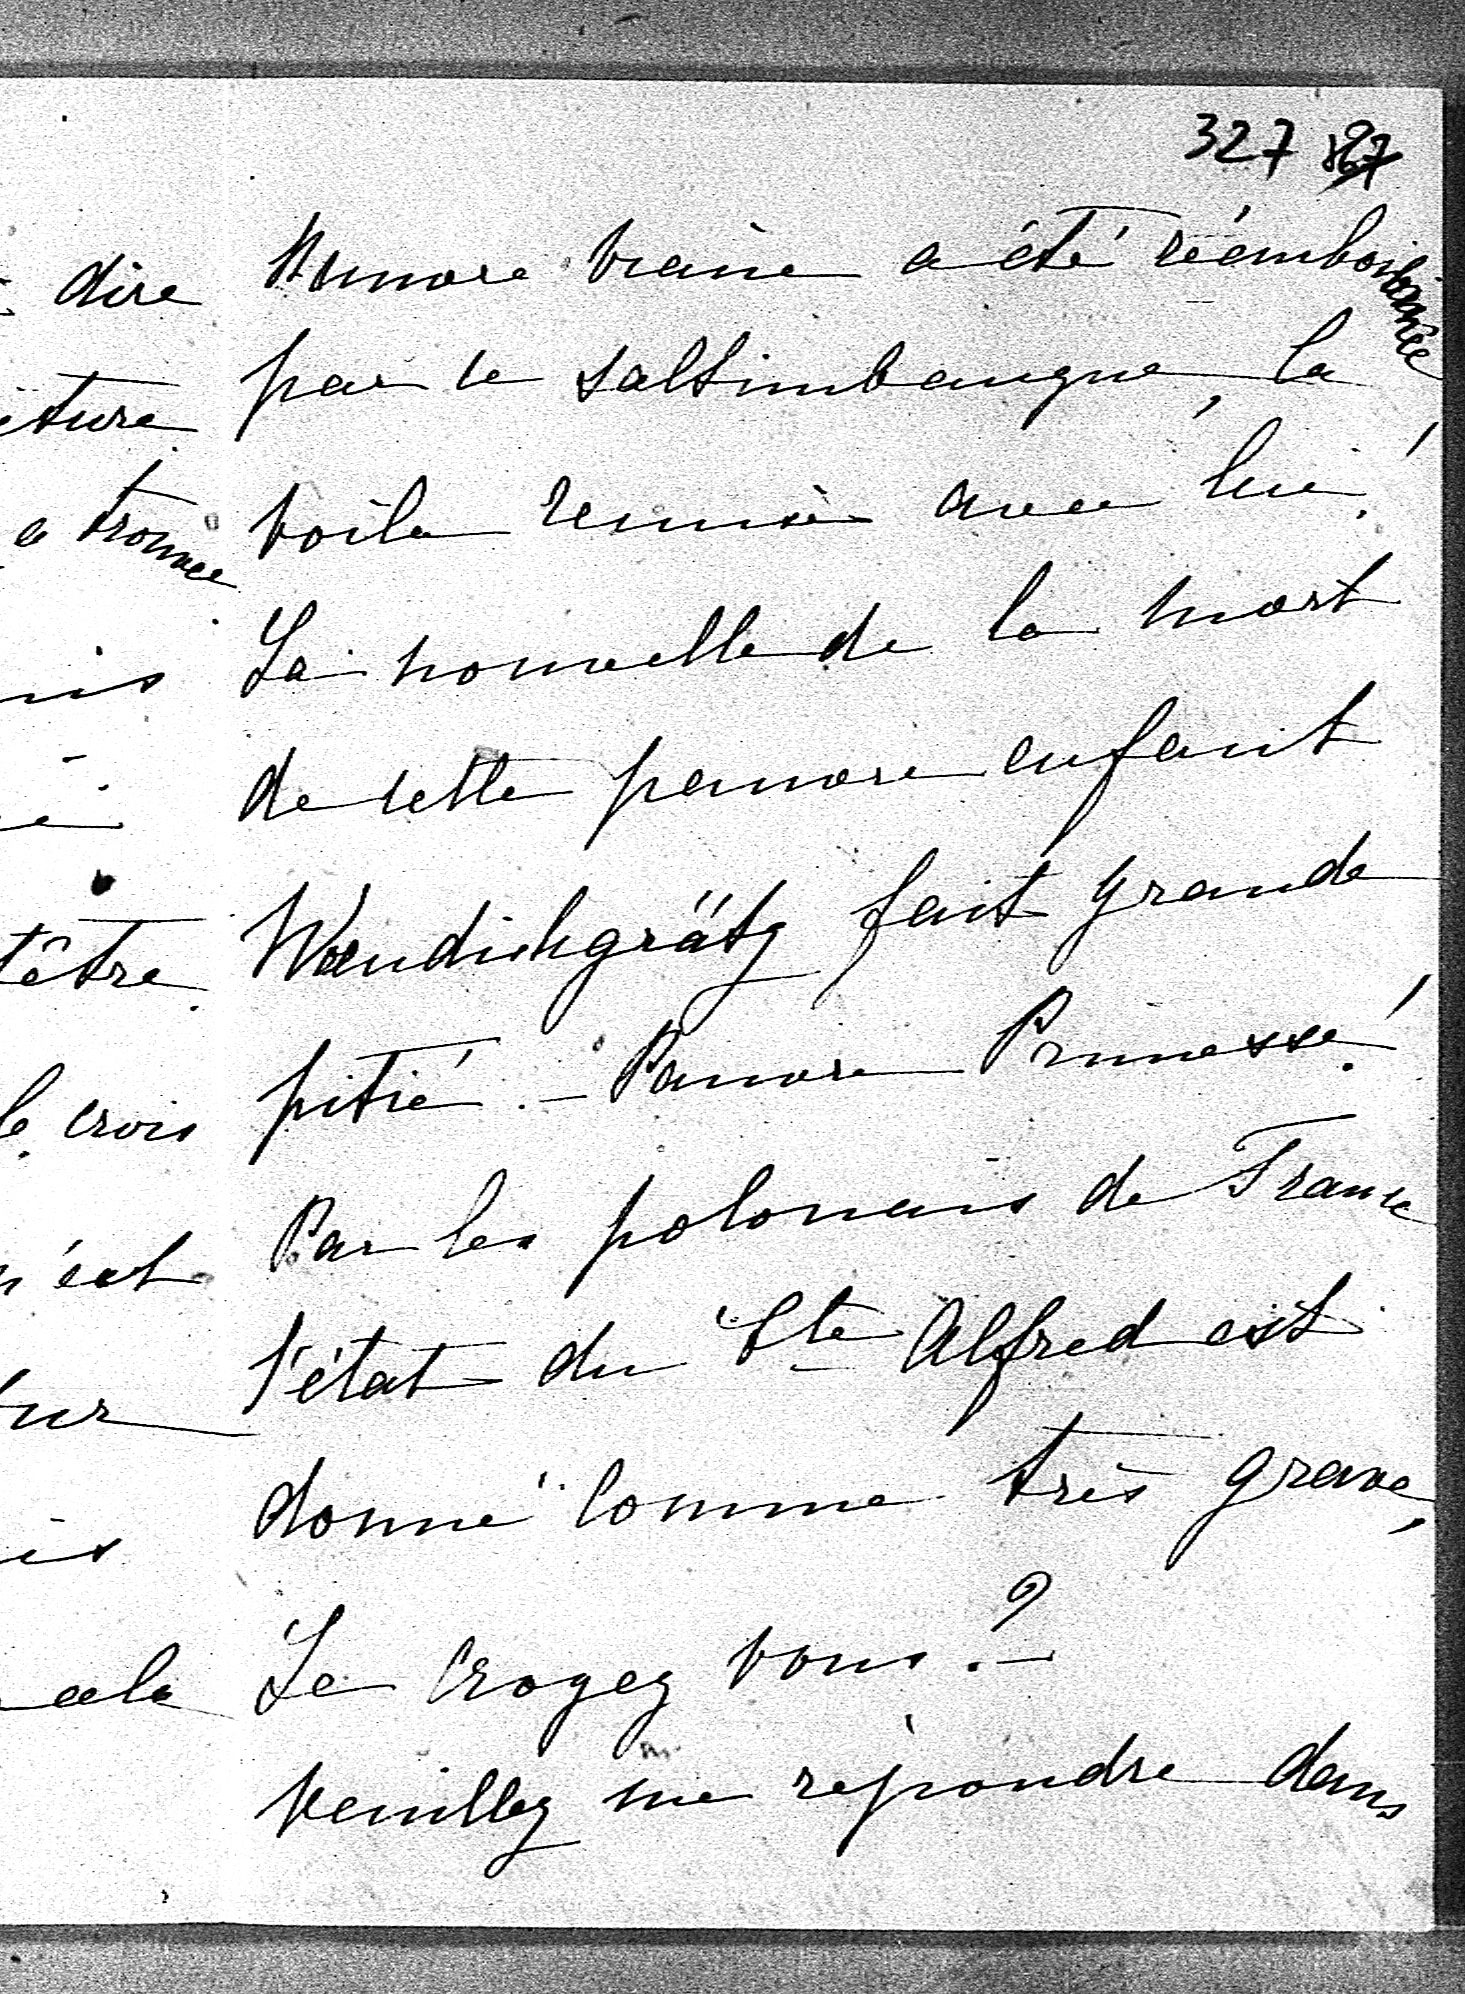 327
dire
a trouvée
têtre
crois
n'est
cela
a été réembobinée
par le saltimbanque, la
voila reunie avec lui!
La nouvelle de la mort
de cette pauvre enfant
Windichgrätz fait grande
pitié. — Pauvre Princesse!
Par les polonais de France
l'état du Cte Alfred est
donné comme très grave,
Le croyez vous? —
Veuillez me répondre dans